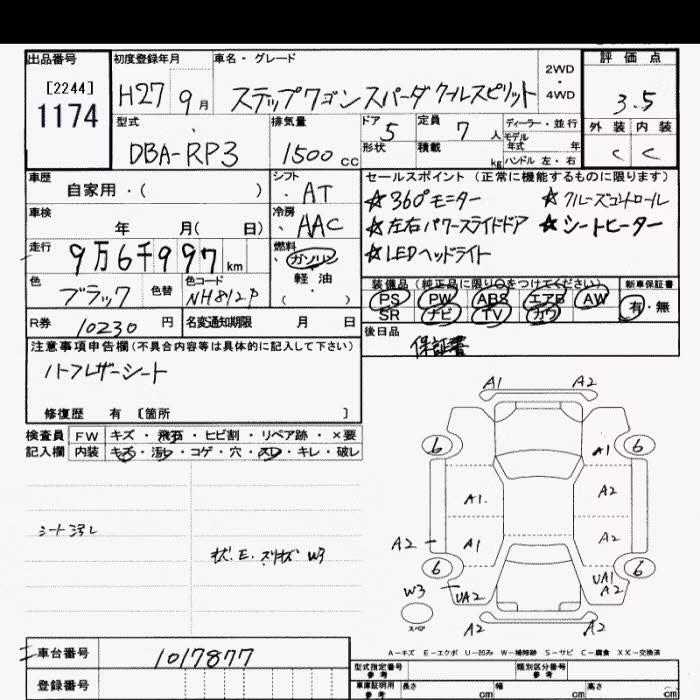 出品番号 初度登録年月 車名・グレード 評価点
[2244]
1174
H27 9月 ステップワゴンスパーダ クールスピリット 2WD・4WD 3.5
型式 排気量 ドア 5 定員 7人 ディーラー・並行 外装 内装
DBA-RP3 1500cc 形状 積載 kg モデル年式 年 C C
ハンドル 左・右
車歴 シフト セールスポイント(正常に機能するものに限ります)
自家用・( ) ・AT ☆360°モニター ☆クルーズコントロール
車検 冷房 ☆左右パワースライドドア ☆シートヒーター
年 月( 日) ・AAC ☆LEDヘッドライト
走行 9万6千997km 燃料 ・ガソリン
軽油
・( )
色 ブラック 色替 色コード NH812P
装備品(純正品に限り○をつけてください) 新車保証書
PS PW ABS エアB AW 有・無
SR ナビ TV カワ
R券 10230円 名変通知期限 月 日 後日品
保証書
注意事項申告欄(不具合内容等は具体的に記入して下さい)
ハーフレザーシート
修復歴 有 〔箇所 〕
検査員 FW キズ・飛石・ヒビ割・リペア跡・×要
記入欄 内装 キズ・汚レ・コゲ・穴・スレ・キレ・破レ
シート汚レ
A1 A2
6 A1 6
A1 A2
A2 A1 A2
6 6
UA1
W3 UA2 A2
スペア
A2 A2
A-キズ E-エクボ U-凹み W-補修跡 S-サビ C-腐食 XX-交換済
車台番号 1017877
登録番号
型式指定番号 参考 類別区分番号 参考
車庫証明用 参考 長さ cm 幅 cm 高さ cm